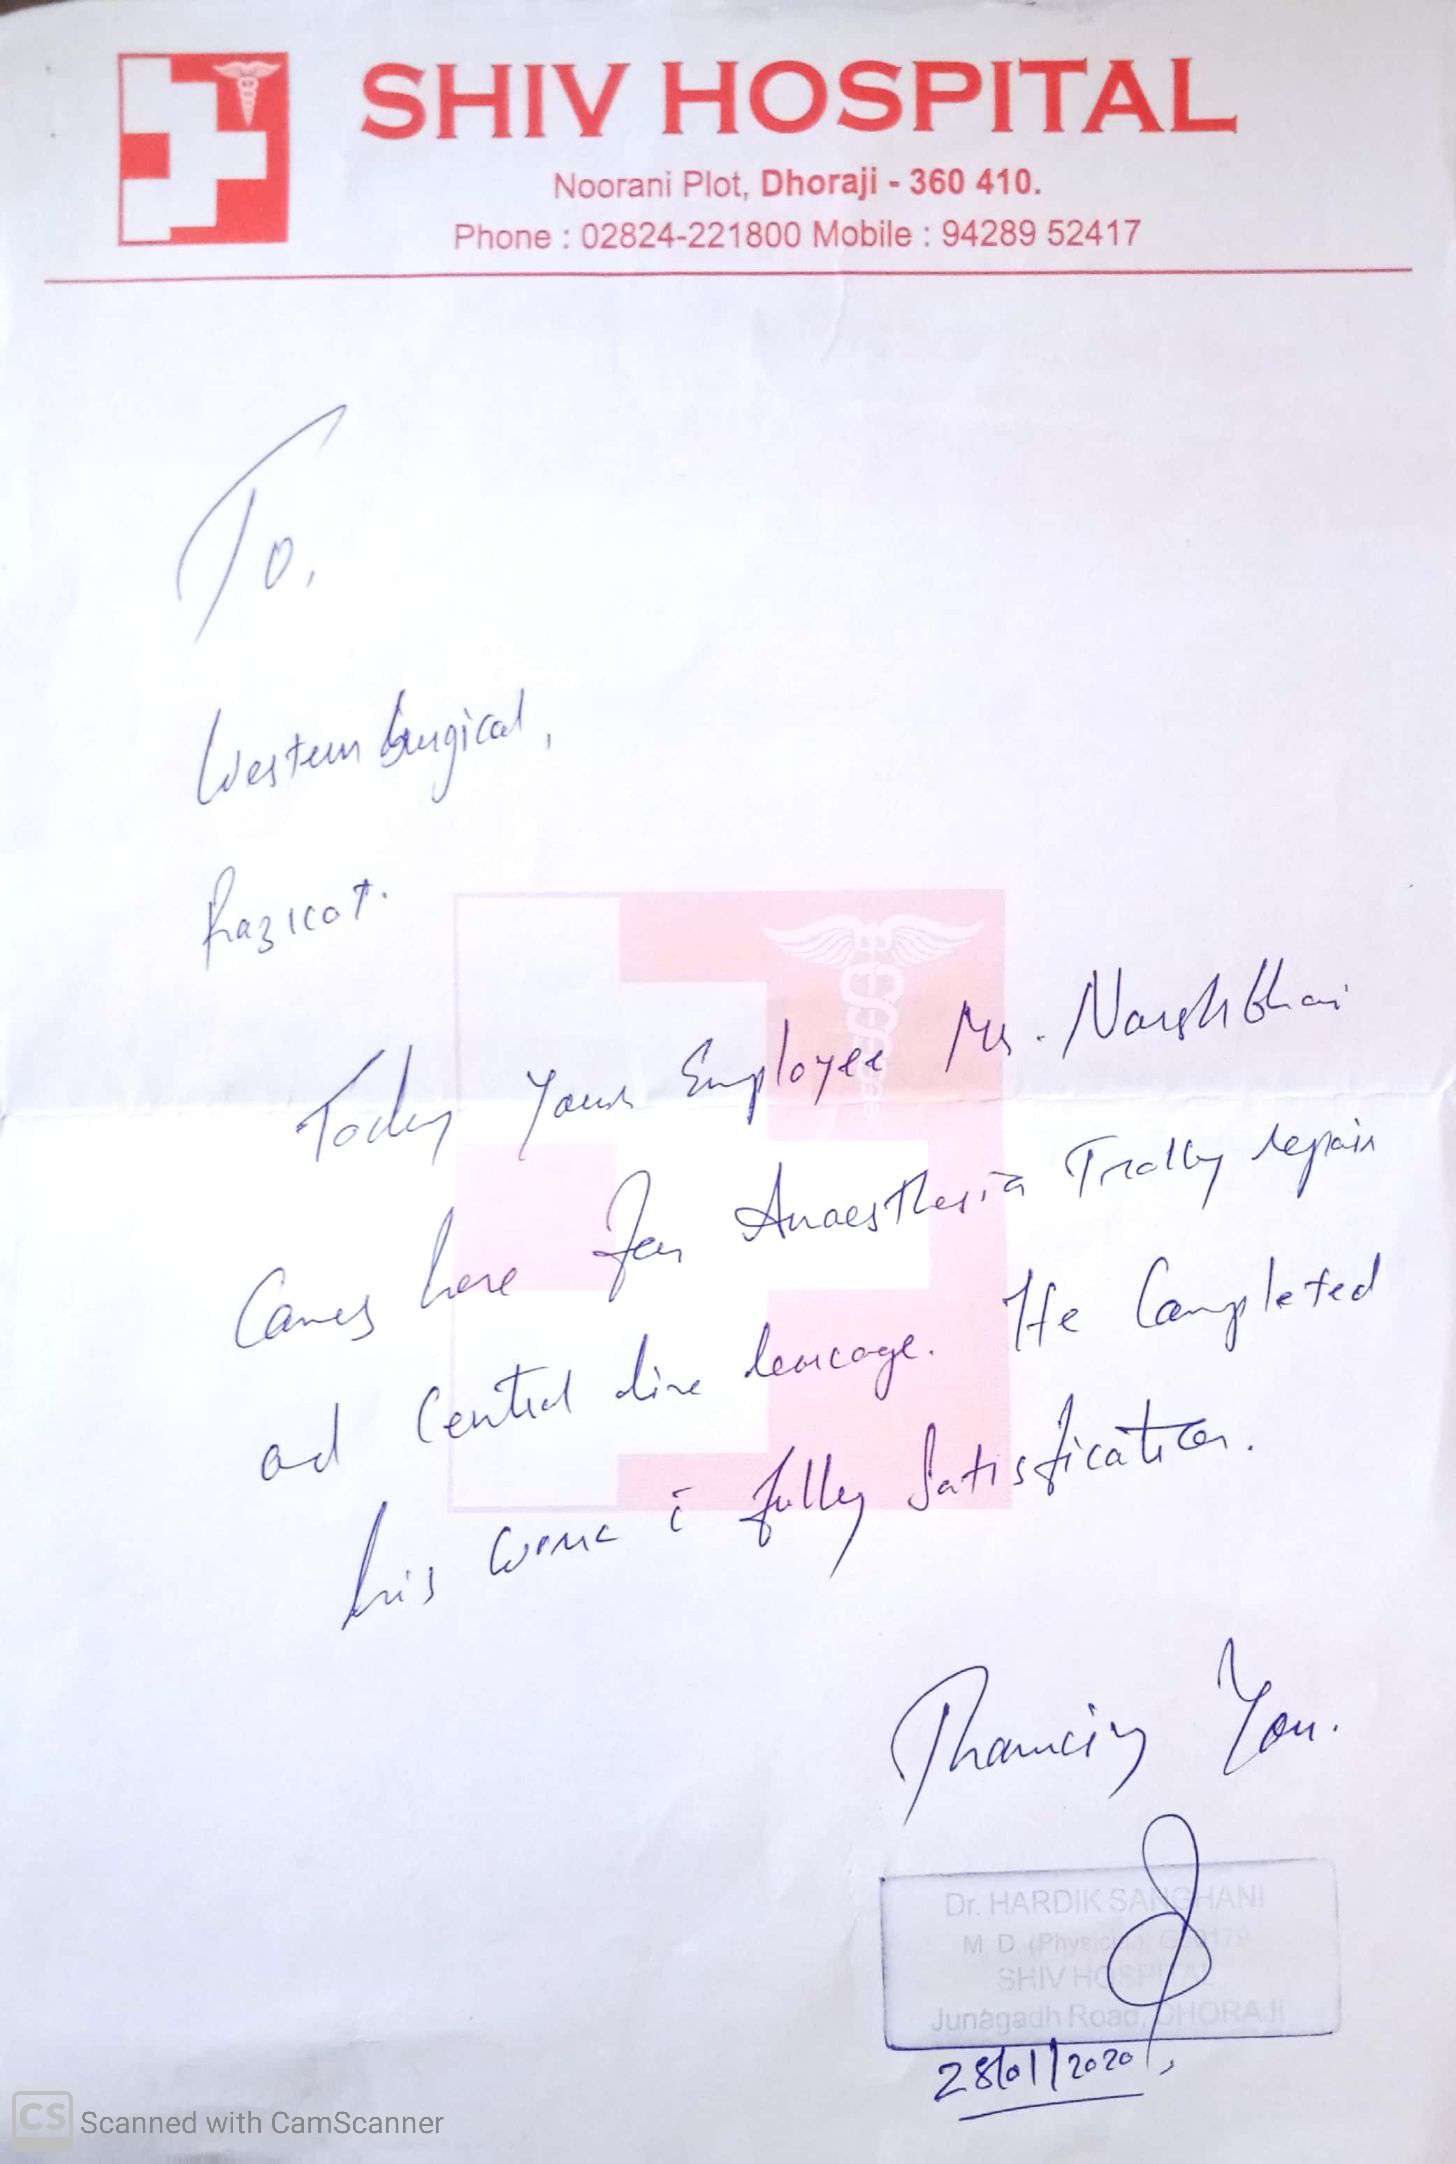 SHIV HOSPITAL
Noorani Plot, Dhoraji - 360 410.
Phone : 02824-221800 Mobile : 94289 52417
To,
Western Surgical,
Razkot.
Today Your Employee Mr. Nareshbhai
Comes here For Anaesthesia Trolly repair
and Central line leakage. He Completed
his work c̄ fully Satisfication.
Thanking You.
Dr. HARDIK SANGHANI
M. D. (Physician)
SHIV HOSPITAL
Junagadh Road, DHORAJI
28/01/2020
CS Scanned with CamScanner